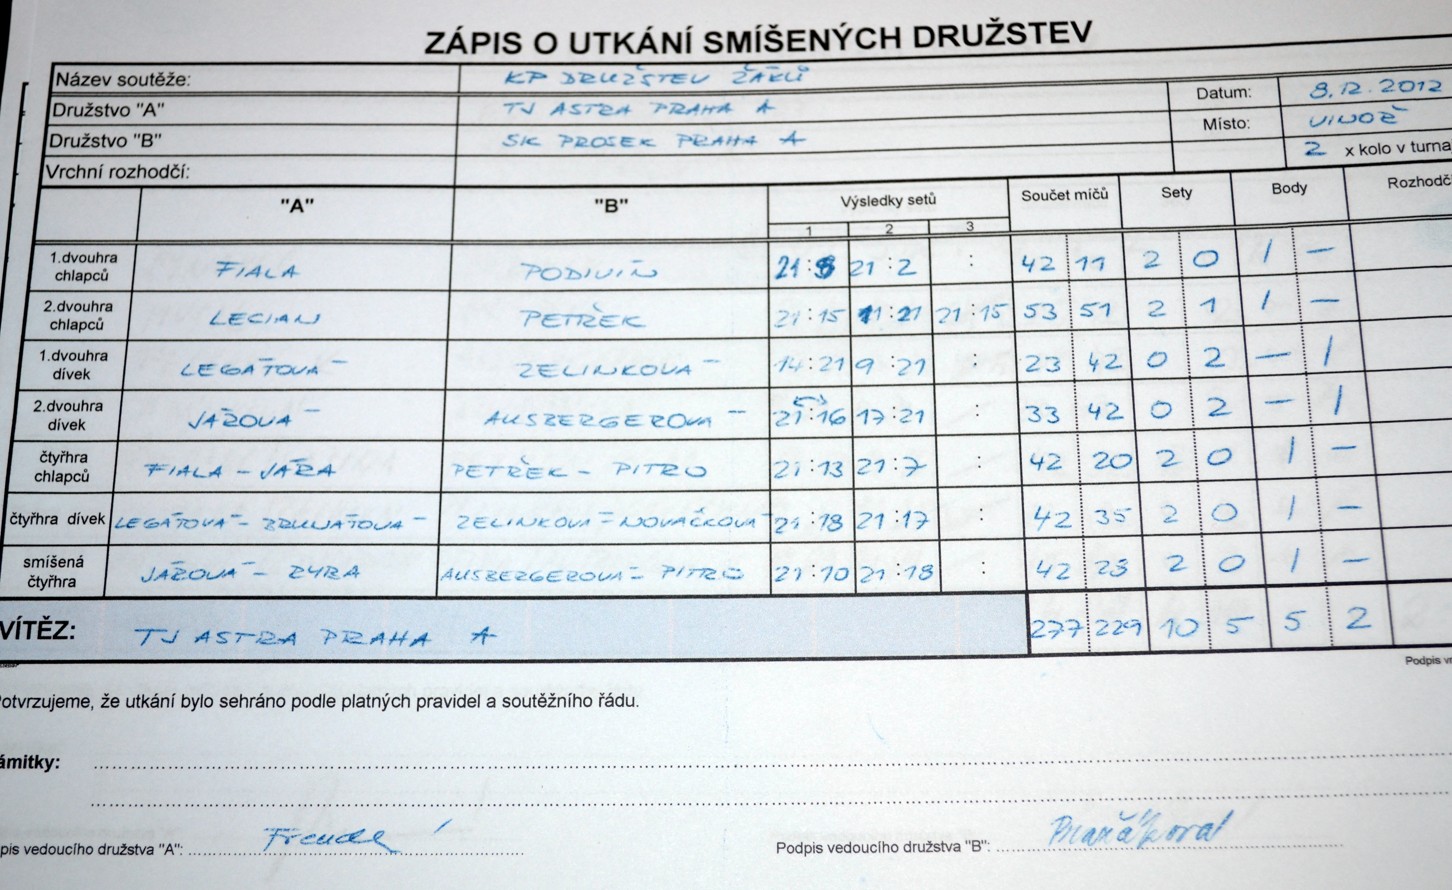 ZÁPIS O UTKÁNÍ SMÍŠENÝCH DRUŽSTEV
Název soutěže: KP DRUŽSTEV ŽÁKŮ
Družstvo "A" TJ ASTRA PRAHA A Datum: 8.12.2012
Družstvo "B" SK PROSEK PRAHA A Místo: VINOŘ
Vrchní rozhodčí: 2 x kolo v turna
"A" "B" Výsledky setů Součet míčů Sety Body Rozhodč
1 2 3
1.dvouhra chlapců FIALA PODIVÍN 21:9 21:2 : 42 11 2 0 1 –
2.dvouhra chlapců LECIAN PETŘEK 21:15 11:21 21:15 53 51 2 1 1 –
1.dvouhra dívek LEGÁTOVÁ ZELINKOVÁ 14:21 9:21 : 23 42 0 2 – 1
2.dvouhra dívek JÁŽOVÁ AUSBERGEROVÁ 21:16 17:21 : 33 42 0 2 – 1
čtyřhra chlapců FIALA – JÁRA PETŘEK – PITRO 21:13 21:7 : 42 20 2 0 1 –
čtyřhra dívek LEGÁTOVÁ – ZELINKOVÁ – NOVÁČKOVÁ 21:18 21:17 : 42 35 2 0 1 –
smíšená čtyřhra JÁŽOVÁ – AUSBERGEROVÁ – PITRO 21:10 21:18 : 42 28 2 0 1 –
VÍTĚZ: TJ ASTRA PRAHA A 277 229 10 5 5 2
Podpis vr
otvrzujeme, že utkání bylo sehráno podle platných pravidel a soutěžního řádu.
ámitky:
pis vedoucího družstva "A": Podpis vedoucího družstva "B":